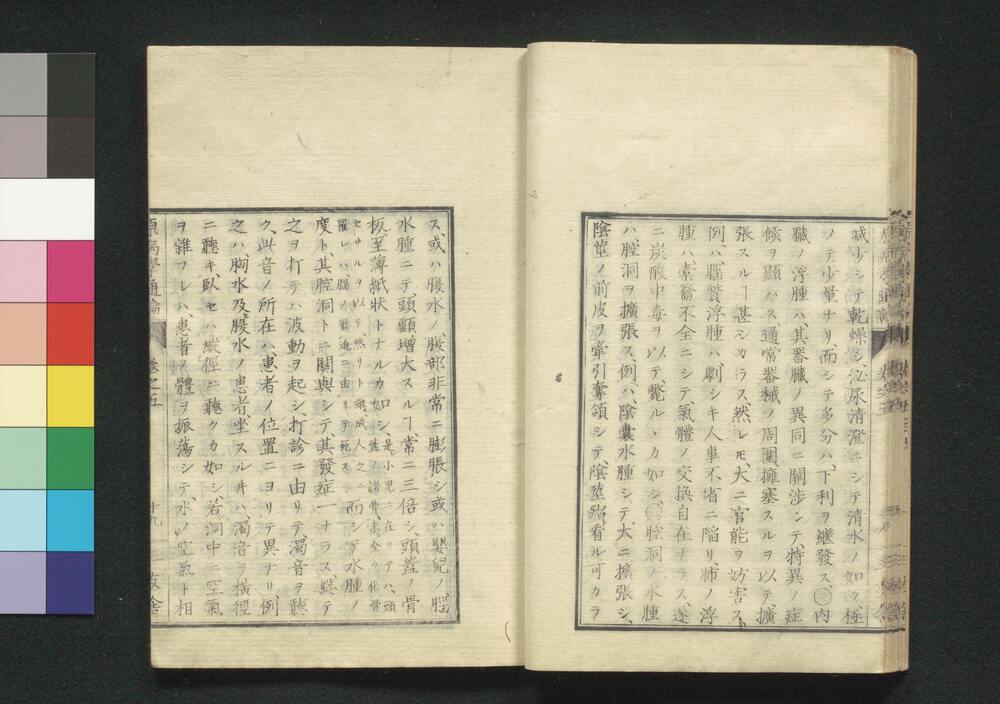 減少シテ乾燥シ泌尿清澄ニシテ清水ノ如ク極
メテ少量ナリ而シテ多分ハ下利ヲ継發ス㊁内
臓ノ浮腫ハ其器臓ノ異同ニ關渉シテ特異ノ症
候ヲ顯ハス通常器械ノ周圍擁塞スルヲ以テ擴
張スルヿ甚シカラス然レモ大ニ官能ヲ妨害ス
例ハ腦質浮腫ハ劇シキ人事不省ニ陥リ肺ノ浮
腫ハ素龠不全ニシテ氣體ノ交換自在ナラス遂
ニ炭酸中毒ヲ以テ斃ルヽカ如シ㊂腔洞ノ水腫
ハ腔洞ヲ擴張ス例ハ陰囊水腫シテ大ニ擴張シ
陰莖ノ前皮ヲ牽引奪領シテ陰莖殆看ル可カラ
ス或ハ腹水ノ腹部非常ニ膨脹シ或ハ嬰兒ノ腦
水腫ニテ頭顱增大スルヿ常ニ三倍シ頭蓋ノ骨
板至薄紙状トナルカ如シ是小兒ニ在リテハ頭蓋ノ諸骨未全ク化骨
セサルヲ以テ然リト雖成人之ニ罹レハ腦ノ壓迫ニ由リテ死ス而シテ水腫ノ
度ト其腔洞トニ關與シテ其發症一ナラス総テ
之ヲ打テハ波動ヲ起シ打診ニ由リテ濁音ヲ聽
ク此音ノ所在ハ患者ノ位置ニヨリテ異ナリ例
之ハ胸水及腹水ノ患者坐スル片ハ濁音ヲ橫徑
ニ聽キ臥セハ縱徑ニ聽クカ如シ若洞中ニ空氣
ヲ雜フレハ患者ノ體ヲ振荡シテ水ノ空氣ト相
原病學通論 卷之五 十九